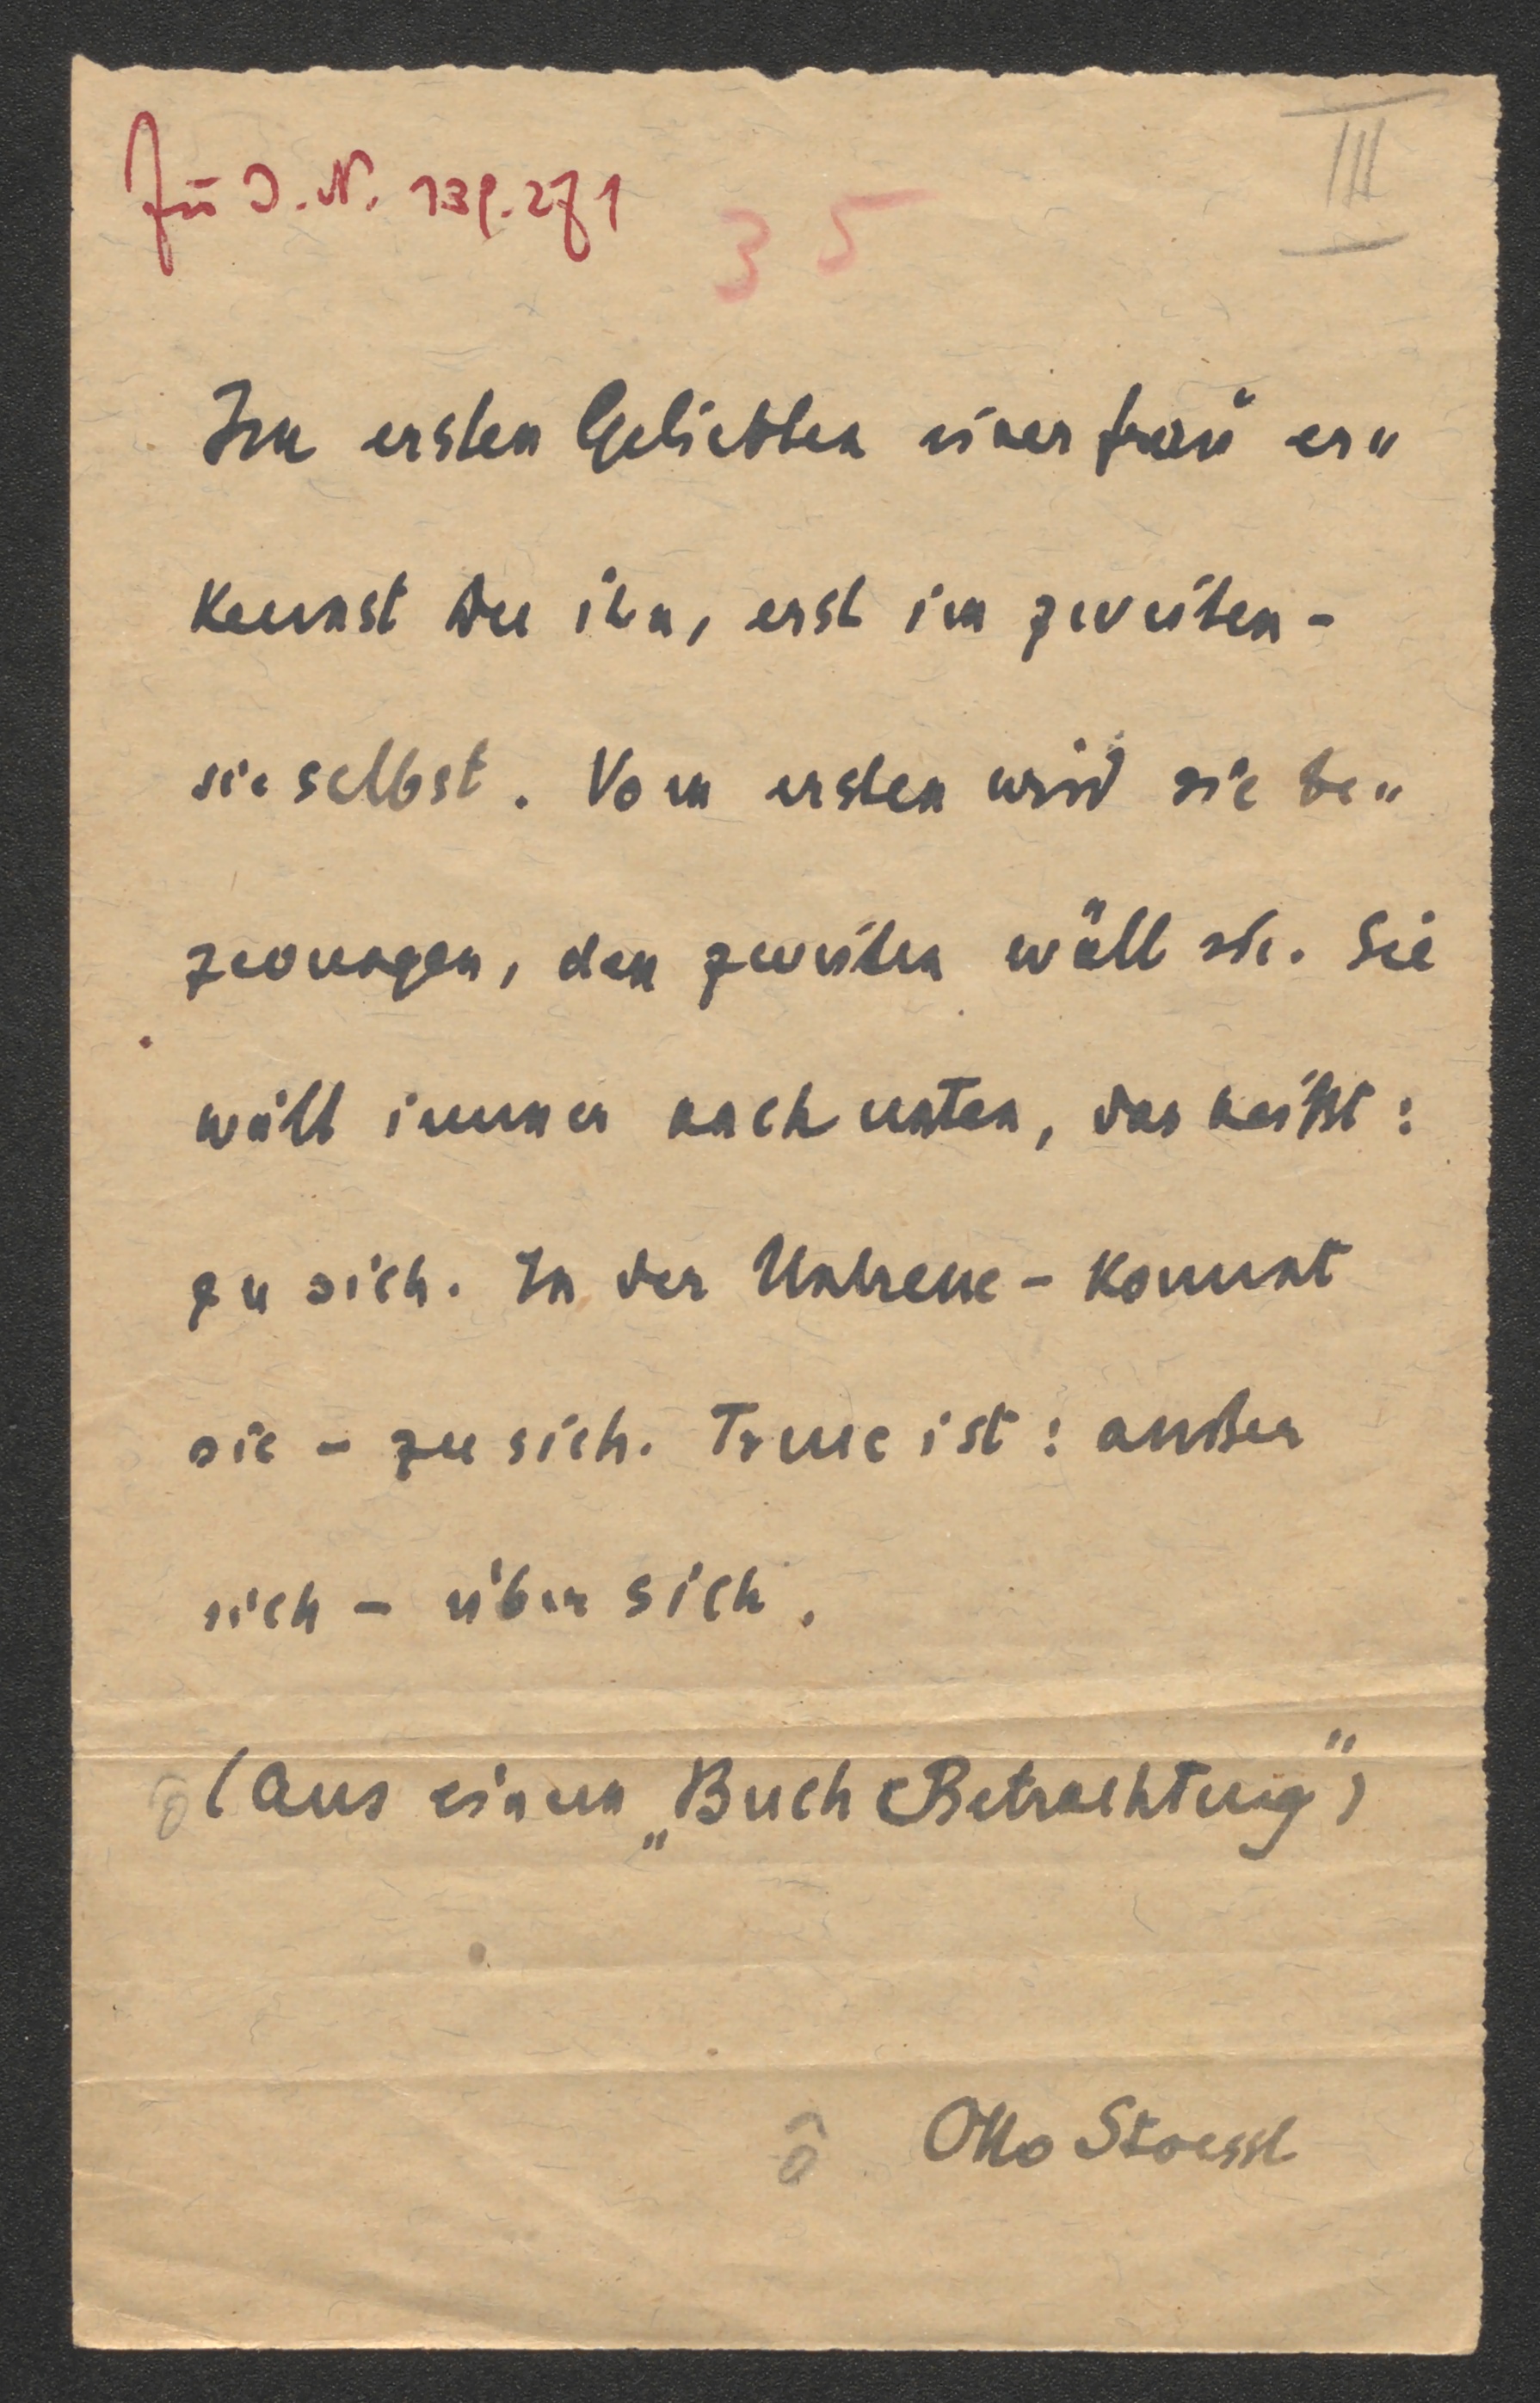 Zu I. N. 139.271
35
III
Im ersten Geliebten einer Frau er„
kennst Du ihn, erst im zweiten -
sie selbst. Vom ersten wird sie be„
zwungen, den zweiten wählt sie. Sie
wählt immer nach unten, das heißt:
zu sich. In der Untreue - kommt
sie - zu sich. Treue ist: außer
sich - über sich.
(Aus einem „Buch Betrachtung")
Otto Stoessl